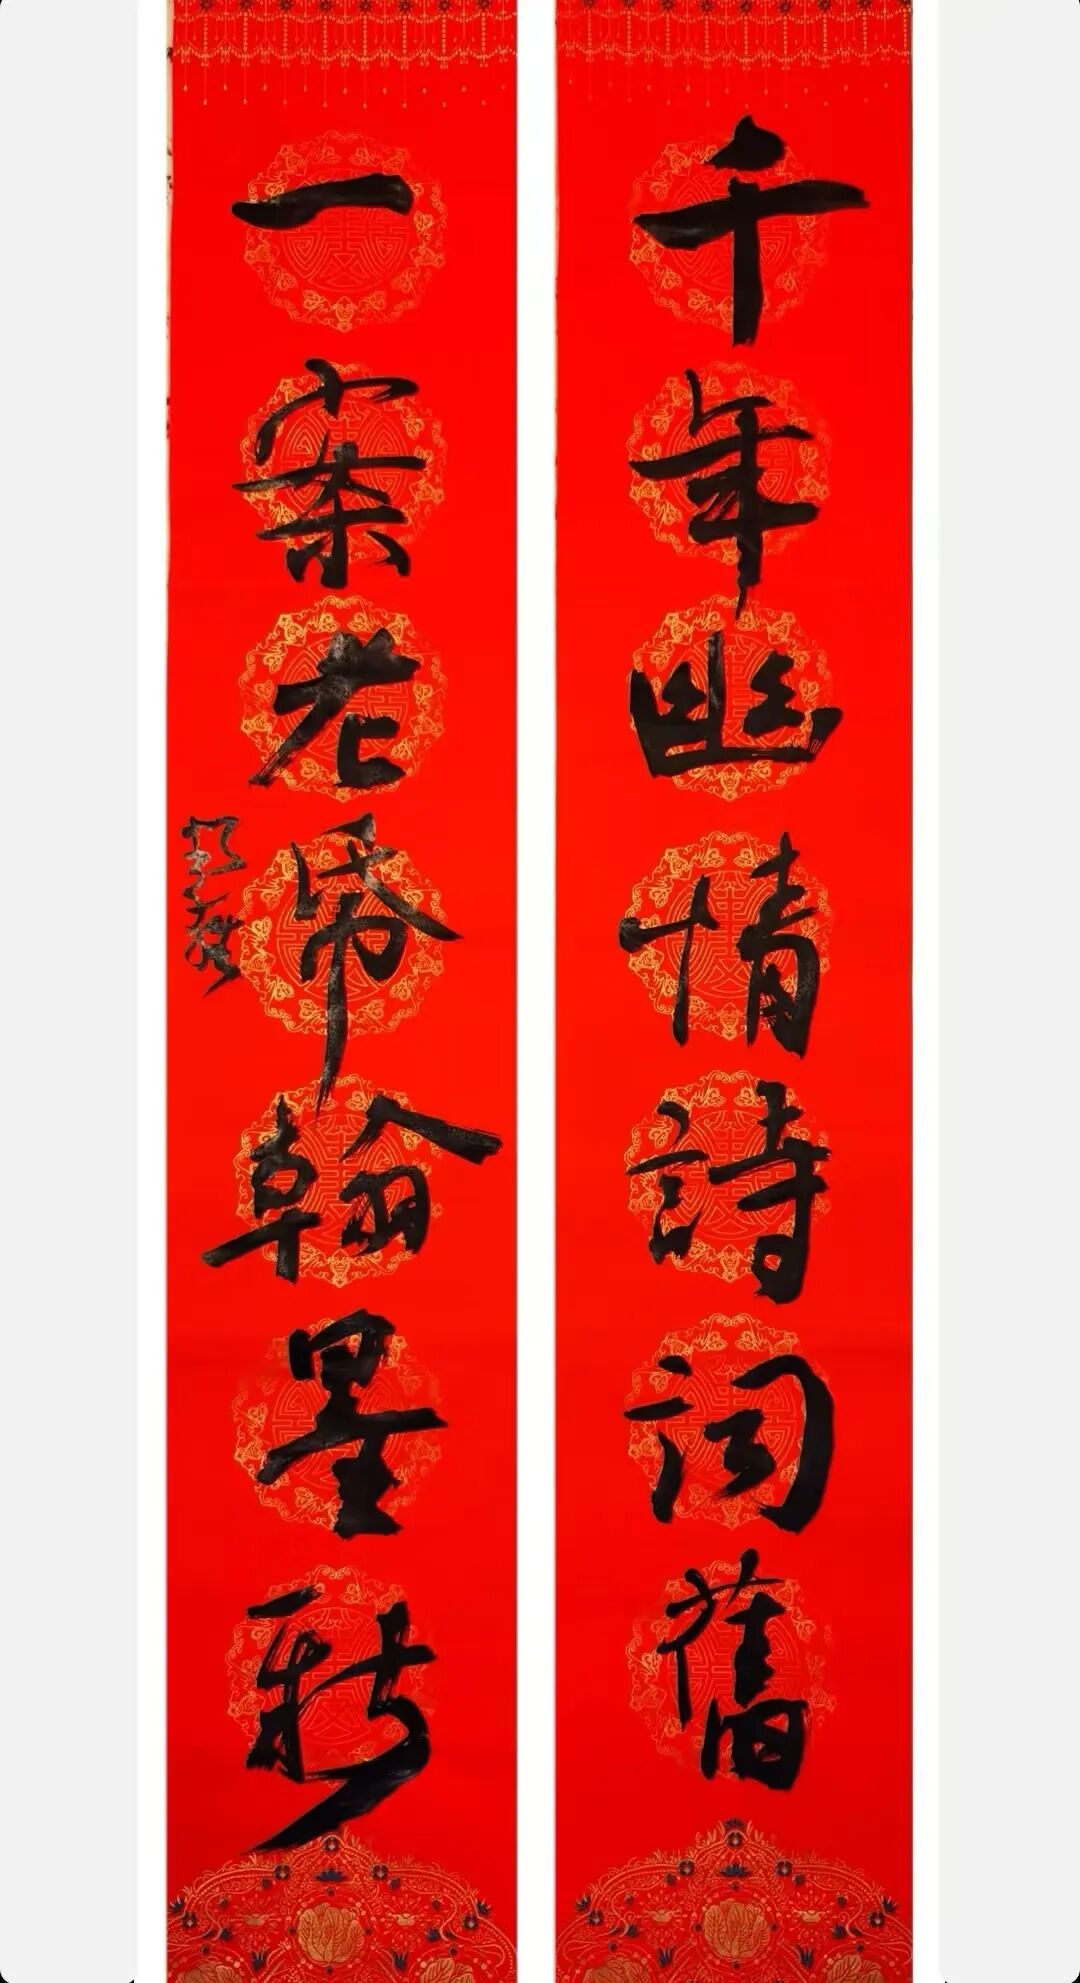 千年幽情詩詞舊
一案老帋翰墨新